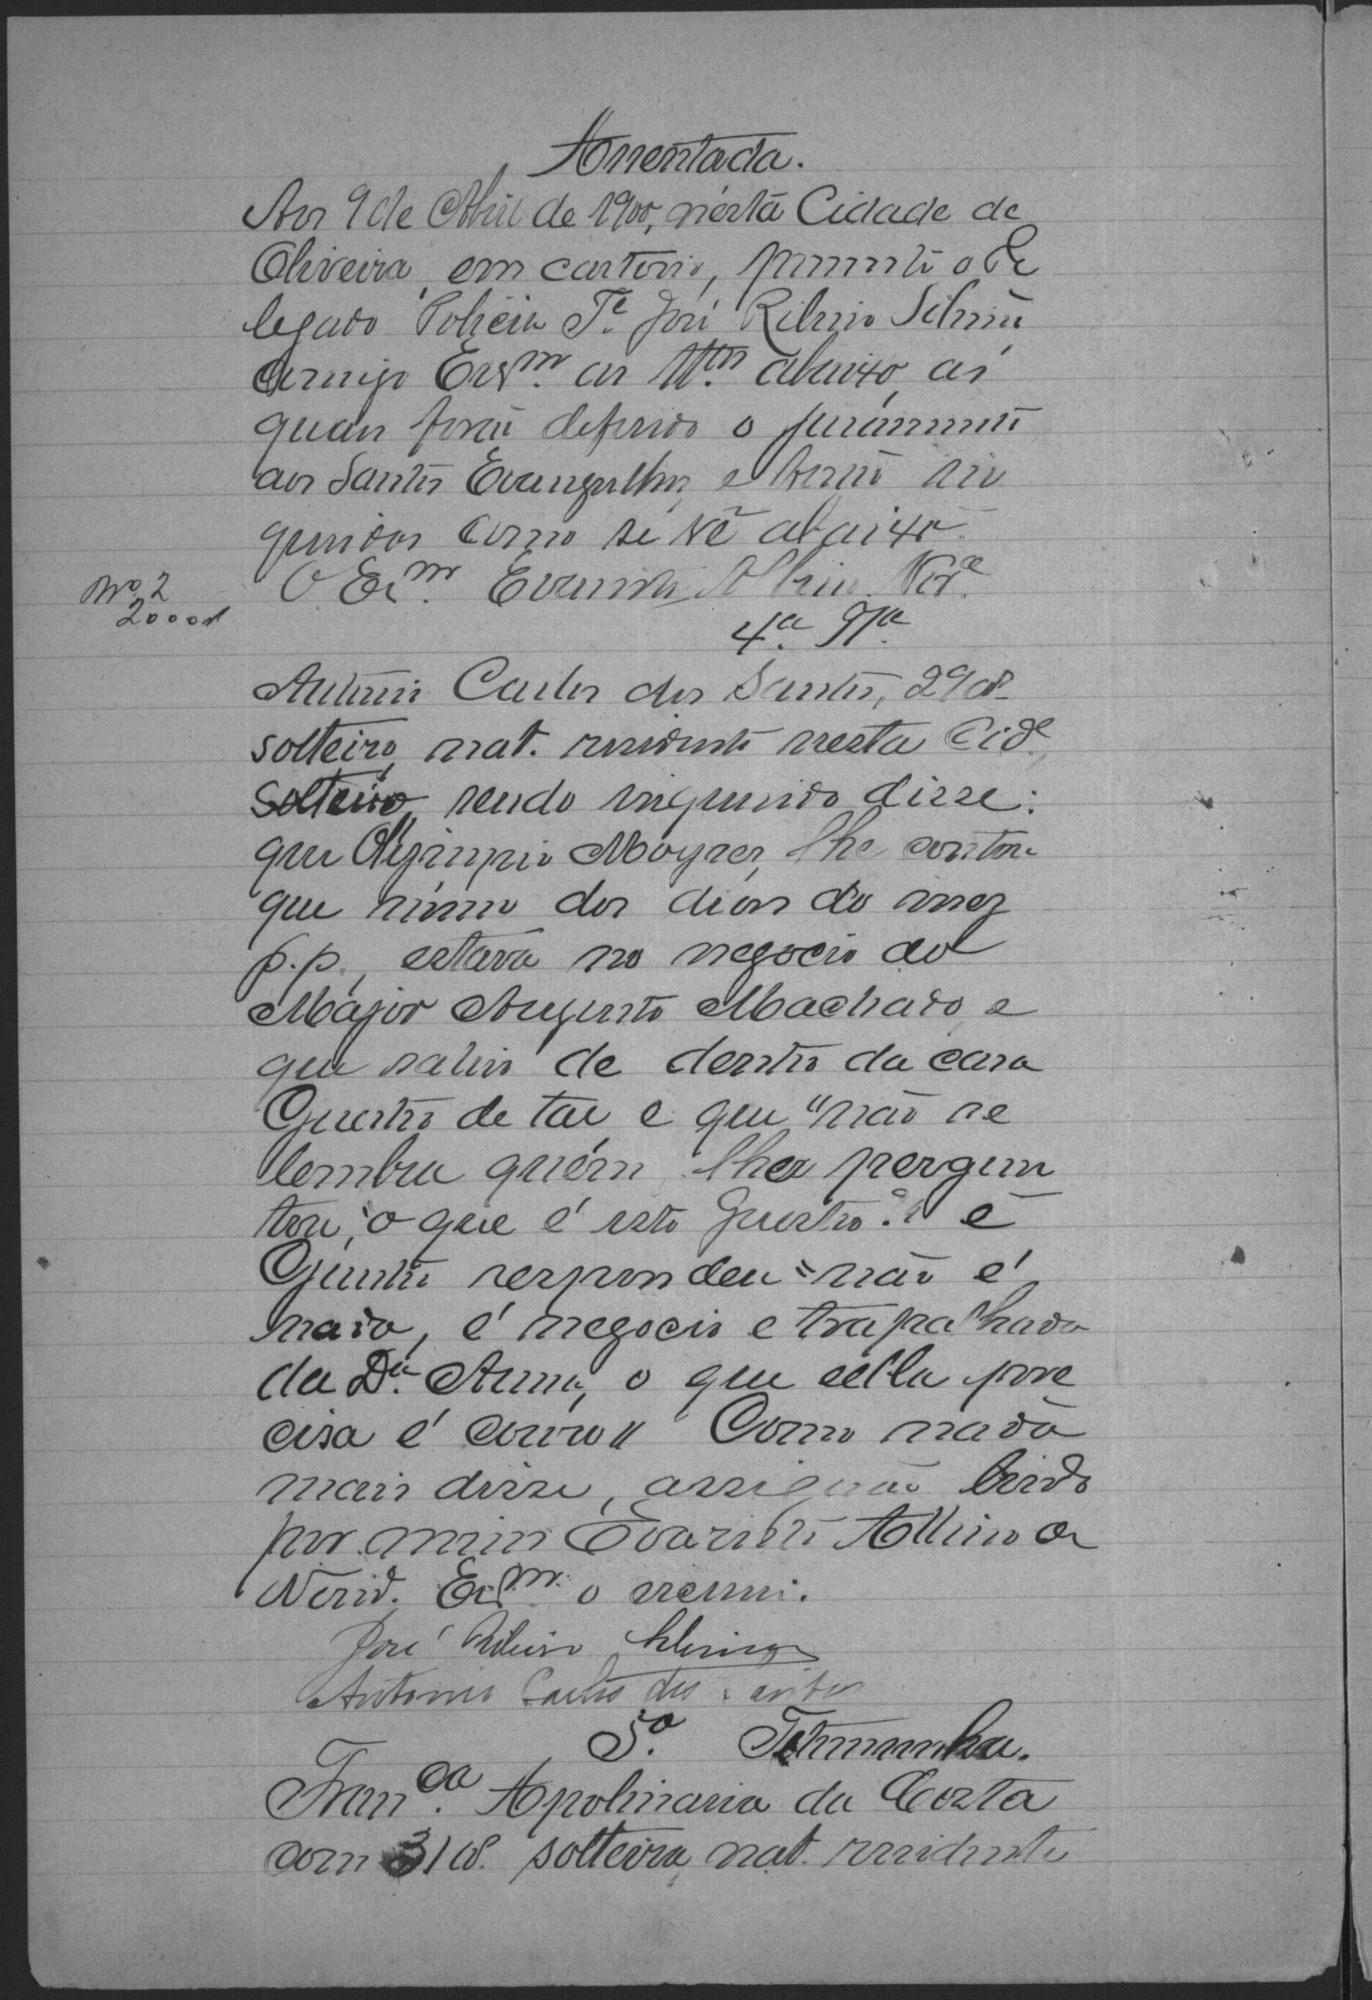 Assentada.
Aos 9 de Abril de 1900, nesta Cidade de
Oliveira, em cartorio, presente o De
legado Policia Te. José Ribeiro Silva
comigo Escrm. as ttas. abaixo, as
quaes forão deferido o juramento
aos Santos Evangelhos e serão in
queridos como se vê abaixo.
O Escrm. Evaristo Albino
No. 2
2000
4.a Tta.
Antonio Carlos dos Santos, 29 as.
solteiro, nat. residente nesta Cide.,
solteiro, sendo inquerido disse:
que Olympio Moyses, lhe contou
que n'um dos dias do mez
p.p., estava no negocio do
Major Augusto Machado e
que sahio de dentro da casa
de tal e que não se
lembra quem lhes pergun
tou, "o que é isto ?" e
respondeu "não é
nada, é negocio e trapalhada
da Da. Anna, o que ella pre
cisa é couro" Como nada
mais disse, assignão lido
por mim Evaristo Albino de
Escrm. o escrevi.
José Ribeiro
Antonio Carlos dos Santos
5.a Testemunha.
Franca. Apolinaria da Costa
com 31 as. solteira, nat. residente